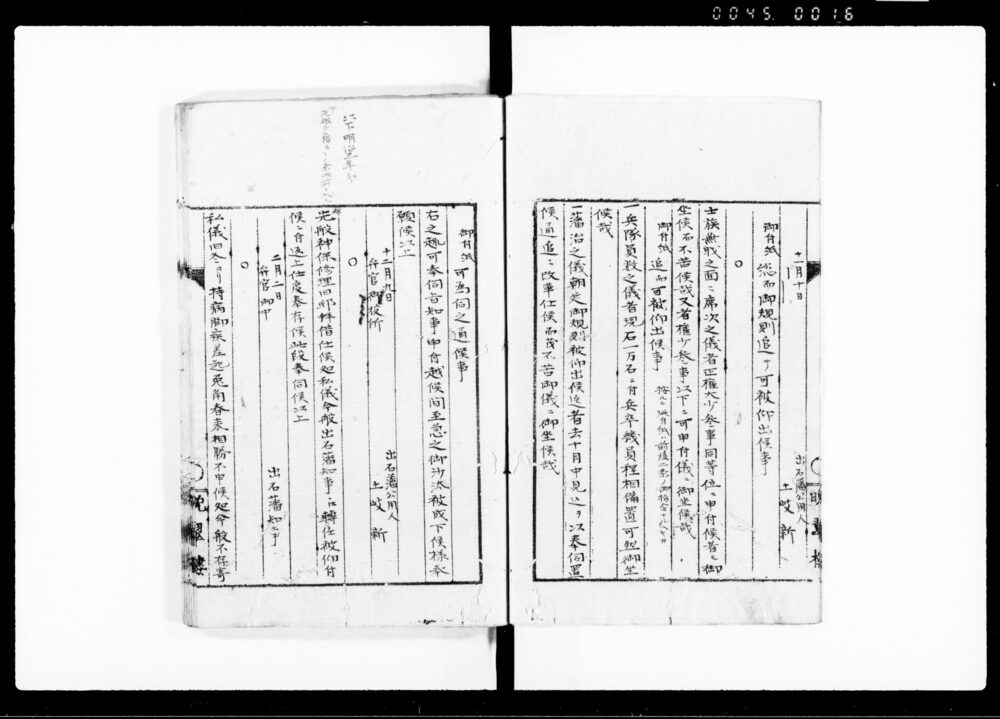 0045. 0016
十一月十日
出石藩公用人
土岐新
御付紙 総而御規則追々可被仰出候事
〇
士族無戝之面ニ席次之儀者正權大少参事同等位ニ申付候者ニ御
坐候而不苦候哉又者權少参事以下ニ可申付儀ニ御坐候哉
御付紙 追而可被仰出候事
一兵隊員数之儀者現石一万石ニ付兵卒幾員程相備置可然御坐
候哉
一藩治之儀朝廷御規則被仰出候迄者去十月中見込ヲ以奉伺置
候通追ニ改革仕候而茂不苦御儀ニ御坐候哉
御付紙 可為伺之通候事
右之趣可奉伺旨知事申付越候間至急之御沙汰被成下候様奉
願候以上
十二月九日
出石藩公用人
土岐新
弁官御役所
〇
以下明治三年分
先般神保修理旧邸拝借仕候処私儀今般出石藩知事江轉任被仰付
候ニ付返上仕度奉存候此段奉伺候以上
二月二日
出石藩知事
弁官御中
〇
私儀旧冬ゟ持病脚疾差起兎角春来相勝不申候処今般不存寄
晩翠楼